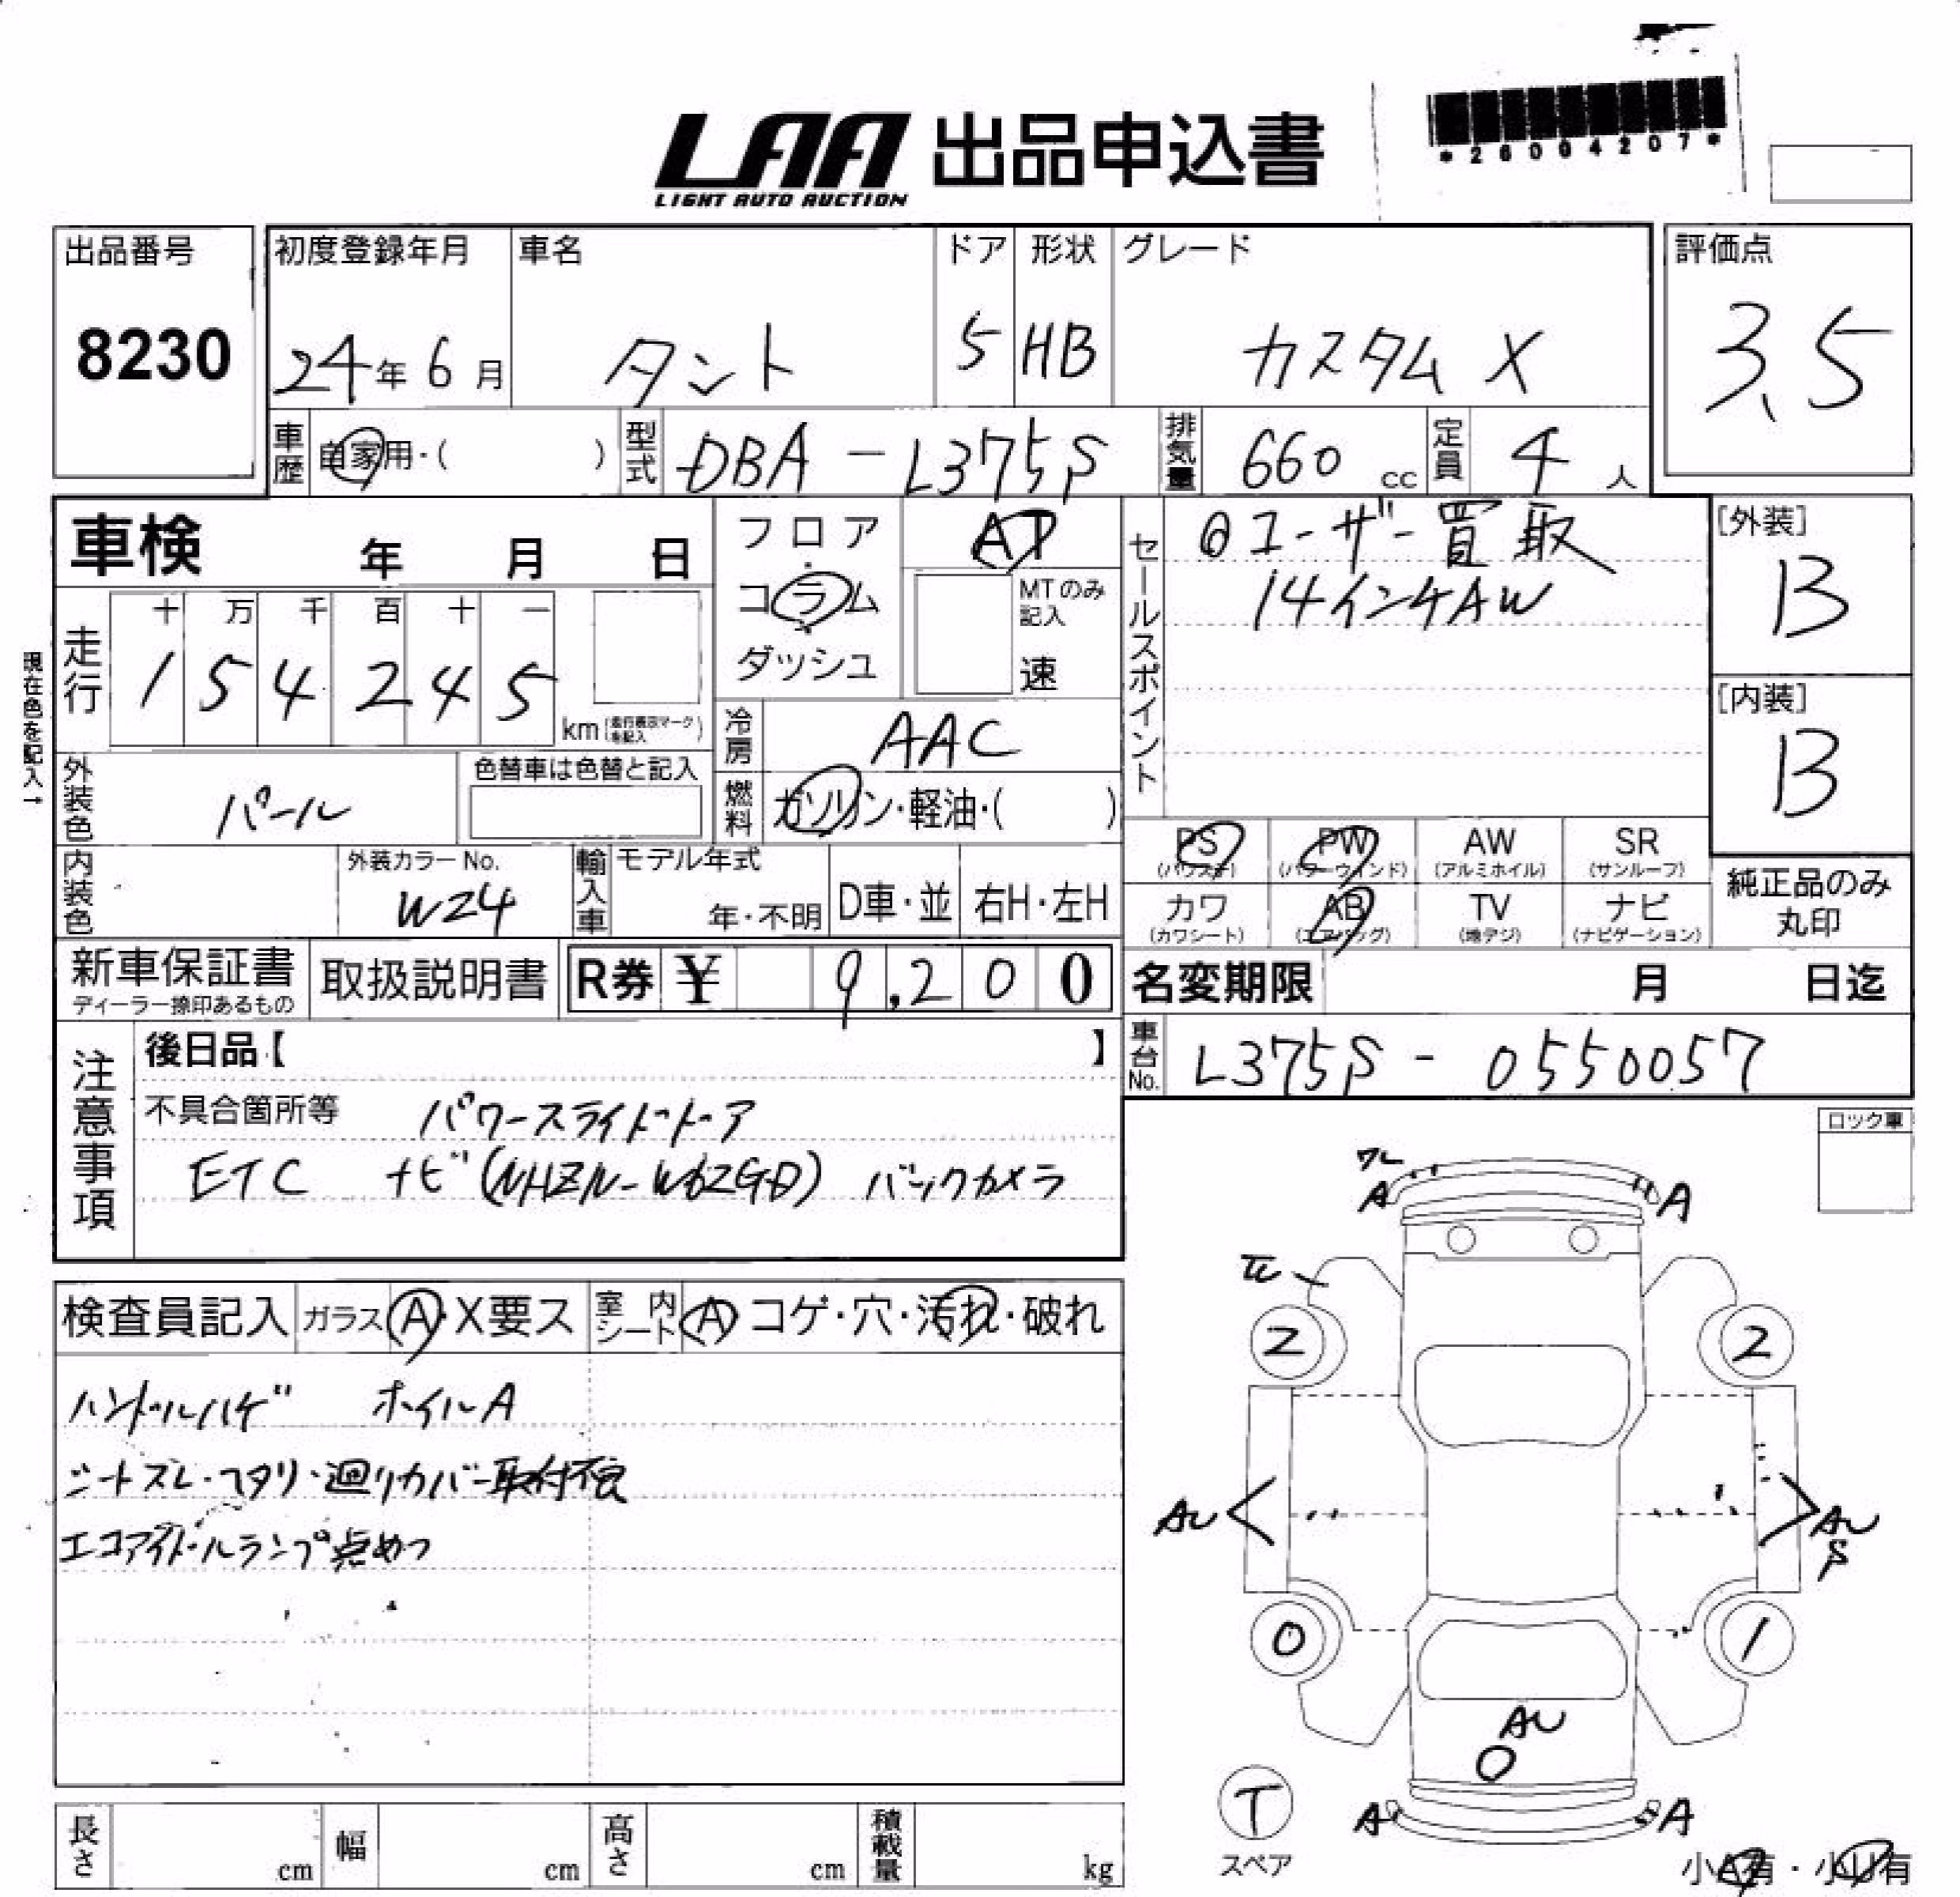 *26004207*
LAA 出品申込書
LIGHT AUTO AUCTION
出品番号
8230
初度登録年月
24年 6月
車名
タント
ドア
5
形状
HB
グレード
カスタム X
評価点
3.5
車歴
自家用・( )
型式
DBA-L375S
排気量
660 cc
定員
4 人
車検 年 月 日
フロア
・
コラム
・
ダッシュ
AT
MTのみ
記入
速
セールスポイント
◎ユーザー買取
14インチAW
[外装]
B
[内装]
B
現在色を記入→
走行
十 万 千 百 十 一
1 5 4 2 4 5
km(走行表示マークを記入)
冷房
AAC
燃料
ガソリン・軽油・( )
外装色
パール
色替車は色替と記入
内装色
外装カラーNo.
W24
輸入車
モデル年式
年・不明
D車・並
右H・左H
PS
(パワステ)
PW
(パワーウィンド)
AW
(アルミホイル)
SR
(サンルーフ)
カワ
(カワシート)
AB
(エアバッグ)
TV
(地デジ)
ナビ
(ナビゲーション)
純正品のみ
丸印
新車保証書
ディーラー捺印あるもの
取扱説明書
R券 ¥ 9,200
名変期限 月 日迄
車台No.
L375S-0550057
注意事項
後日品【 】
不具合箇所等 パワースライドドア
ETC ナビ(NHZN-W62GD) バックカメラ
ロック車
検査員記入
ガラス A・X要ス
室内シート A コゲ・穴・汚れ・破れ
ハンドルハゲ ホイルA
シートスレ・ヘタリ・廻りカバー取付不良
エコアイドルランプ点めつ
ワレ
A
A
2
2
AU
AU
S
0
1
AU
A
A
T
スペア
小A有・小U有
長さ cm
幅 cm
高さ cm
積載量 kg